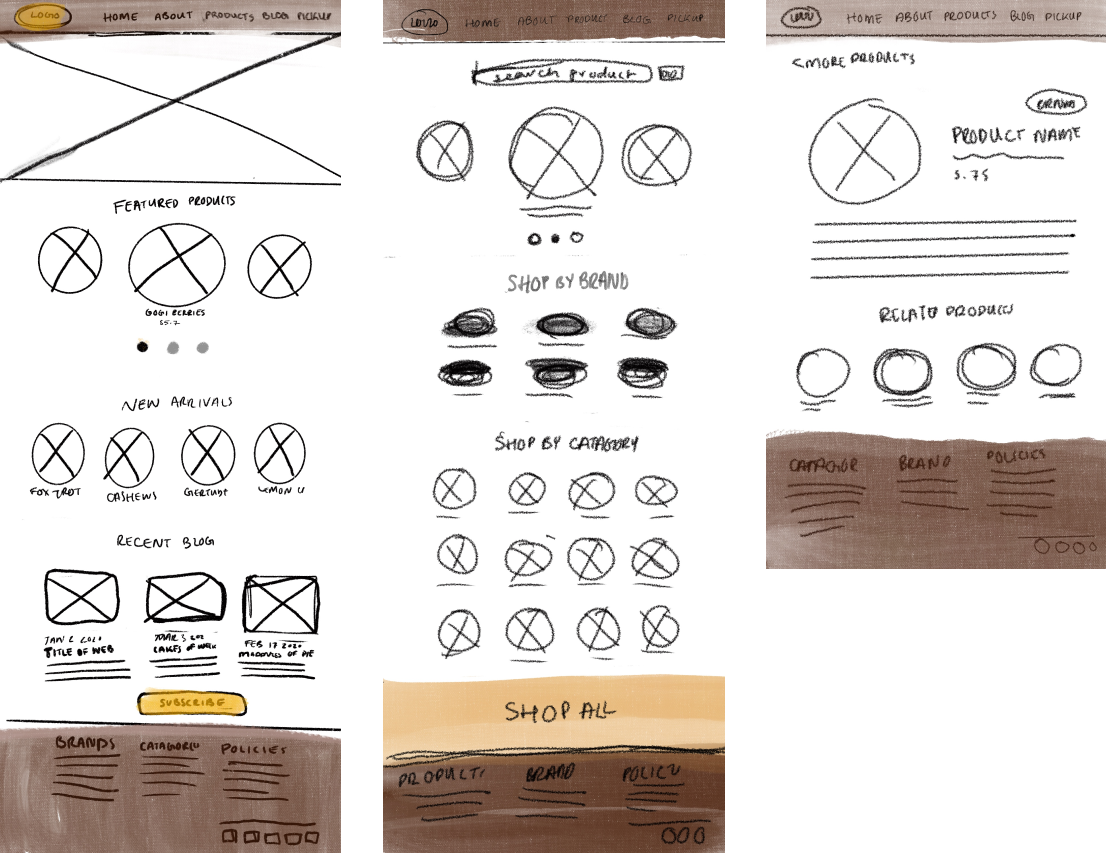 LOGO HOME ABOUT PRODUCTS BLOG PICKUP
FEATURED PRODUCTS
GOGI BERRIES
$5.7
NEW ARRIVALS
FOX TROT CASHEWS GERTUDE LEMON U
RECENT BLOG
JAN 2 2020
TITLE OF WEB
CAKES OF WEEK
FEB 17 2020
MADDNES OF PIE
SUBSCRIBE
BRANDS CATAGORLU POLICIES
LOGO HOME ABOUT PRODUCT BLOG PICKUP
search product
SHOP BY BRAND
SHOP BY CATAGORY
SHOP ALL
PRODUCT BRAND POLICY
HOME ABOUT PRODUCTS BLOG PICKUP
<MORE PRODUCTS
BRAND
PRODUCT NAME
5.75
RELATD PRODUCTS
CATAGOR BRAND POLICIES